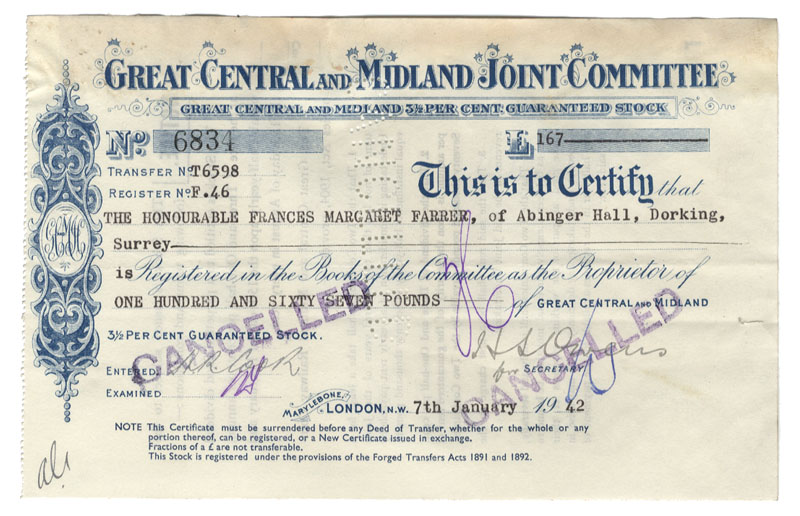 GREAT CENTRAL AND MIDLAND JOINT COMMITTEE
GREAT CENTRAL AND MIDLAND 3½ PER CENT. GUARANTEED STOCK
No. 6834 £ 167
TRANSFER No. T6598
REGISTER No. F.46
This is to Certify that
THE HONOURABLE FRANCES MARGARET FARRER, of Abinger Hall, Dorking,
Surrey
is Registered in the Books of the Committee as the Proprietor of
ONE HUNDRED AND SIXTY SEVEN POUNDS of GREAT CENTRAL AND MIDLAND
3½ PER CENT GUARANTEED STOCK.
CANCELLED
CANCELLED
ENTERED
for SECRETARY
EXAMINED
MARYLEBONE, LONDON, N.W. 7th January 1942
NOTE This Certificate must be surrendered before any Deed of Transfer, whether for the whole or any
portion thereof, can be registered, or a New Certificate issued in exchange.
Fractions of a £ are not transferable.
This Stock is registered under the provisions of the Forged Transfers Acts 1891 and 1892.